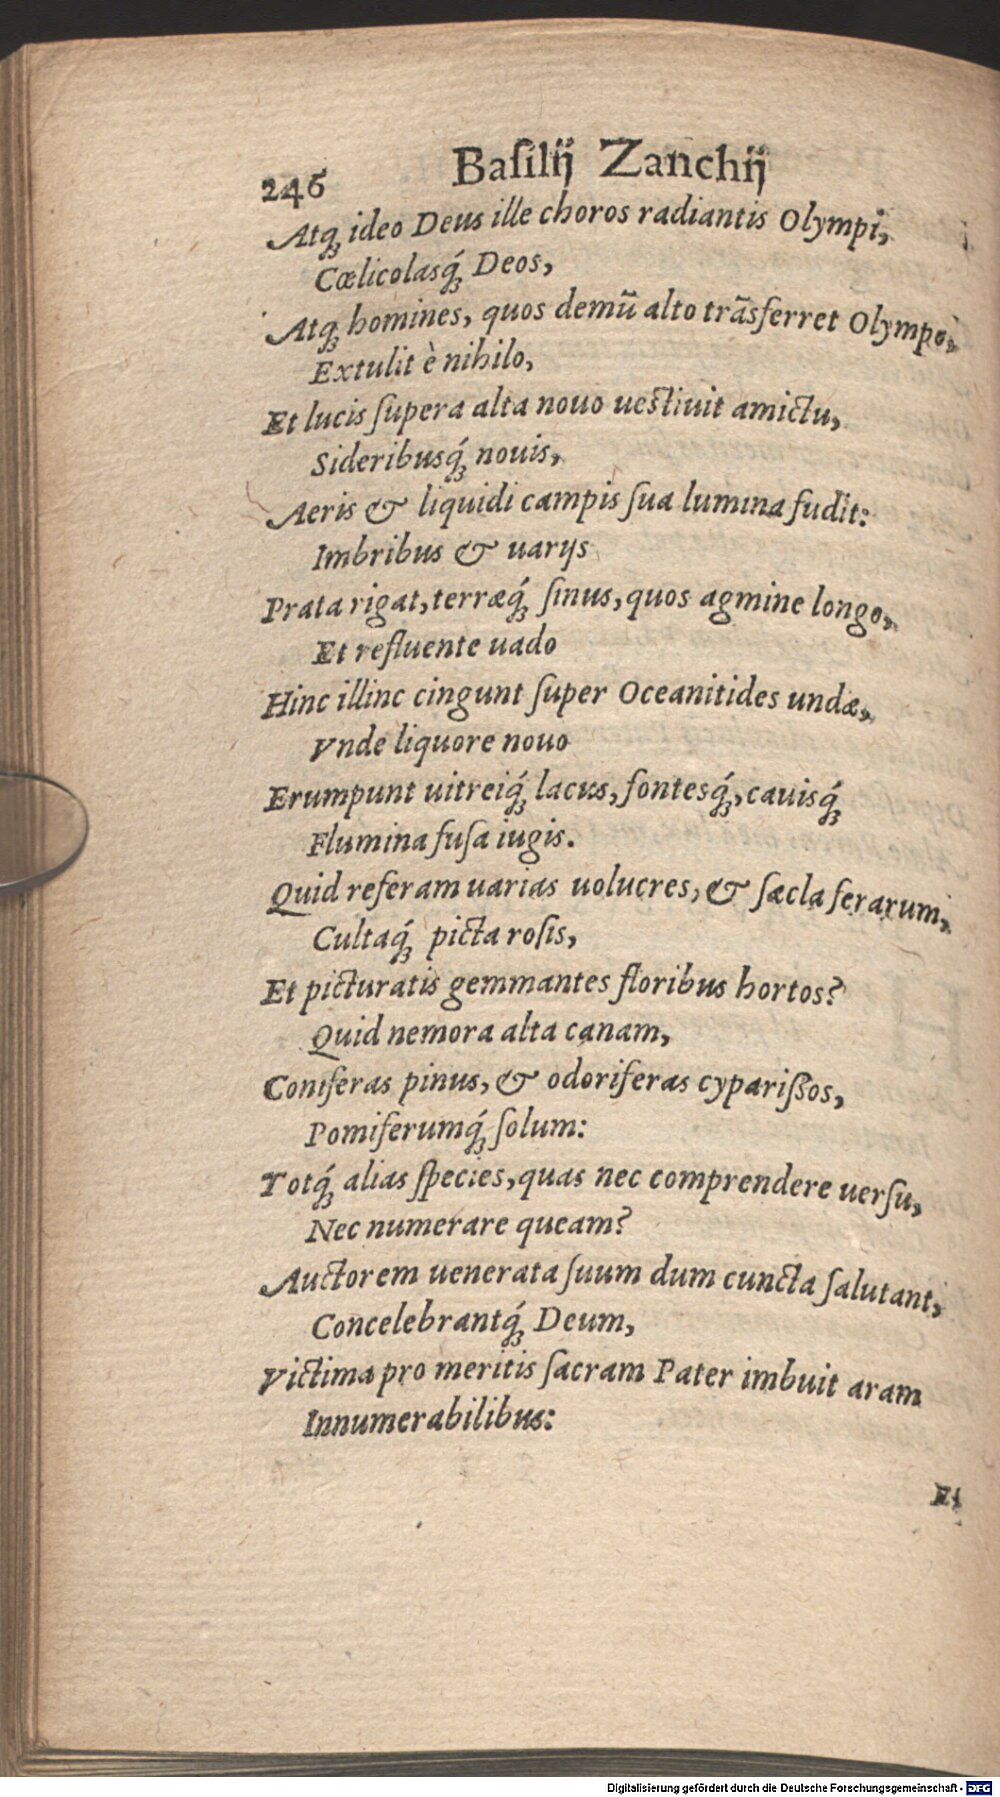 246 Baſilij Zanchij
Atq́ꝫ ideo Deus ille choros radiantis Olympi,
Cœlicolasq́ꝫ Deos,
Atqꝫ homines, quos demũ alto trãsferret Olympo,
Extulit è nihilo,
Et lucis ſupera alta nouo ueſtiuit amictu,
Sideribusq́ꝫ nouis,
Aeris & liquidi campis ſua lumina fudit:
Imbribus & uarijs
Prata rigat, terræq́ꝫ ſinus, quos agmine longo,
Et refluente uado
Hinc illinc cingunt ſuper Oceanitides undæ,
Vnde liquore nouo
Erumpunt uitreiq́ꝫ lacus, fontesq́ꝫ, cauisq́ꝫ
Flumina fuſa iugis.
Quid referam uarias uolucres, & ſæcla ferarum,
Cultaq́ꝫ picta roſis,
Et picturatis gemmantes floribus hortos?
Quid nemora alta canam,
Coniferas pinus, & odoriferas cypariſsos,
Pomiferumq́ꝫ ſolum:
Totq́ꝫ alias ſpecies, quas nec comprendere uerſu,
Nec numerare queam?
Auctorem uenerata ſuum dum cuncta ſalutant,
Concelebrantq́ꝫ Deum,
Victima pro meritis ſacram Pater imbuit aram
Innumerabilibus:
Et
Digitalisierung gefördert durch die Deutsche Forschungsgemeinschaft - DFG